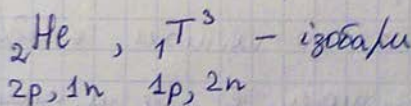 ₂He , ₁T³ – ізобари
2p, 1n 1p, 2n